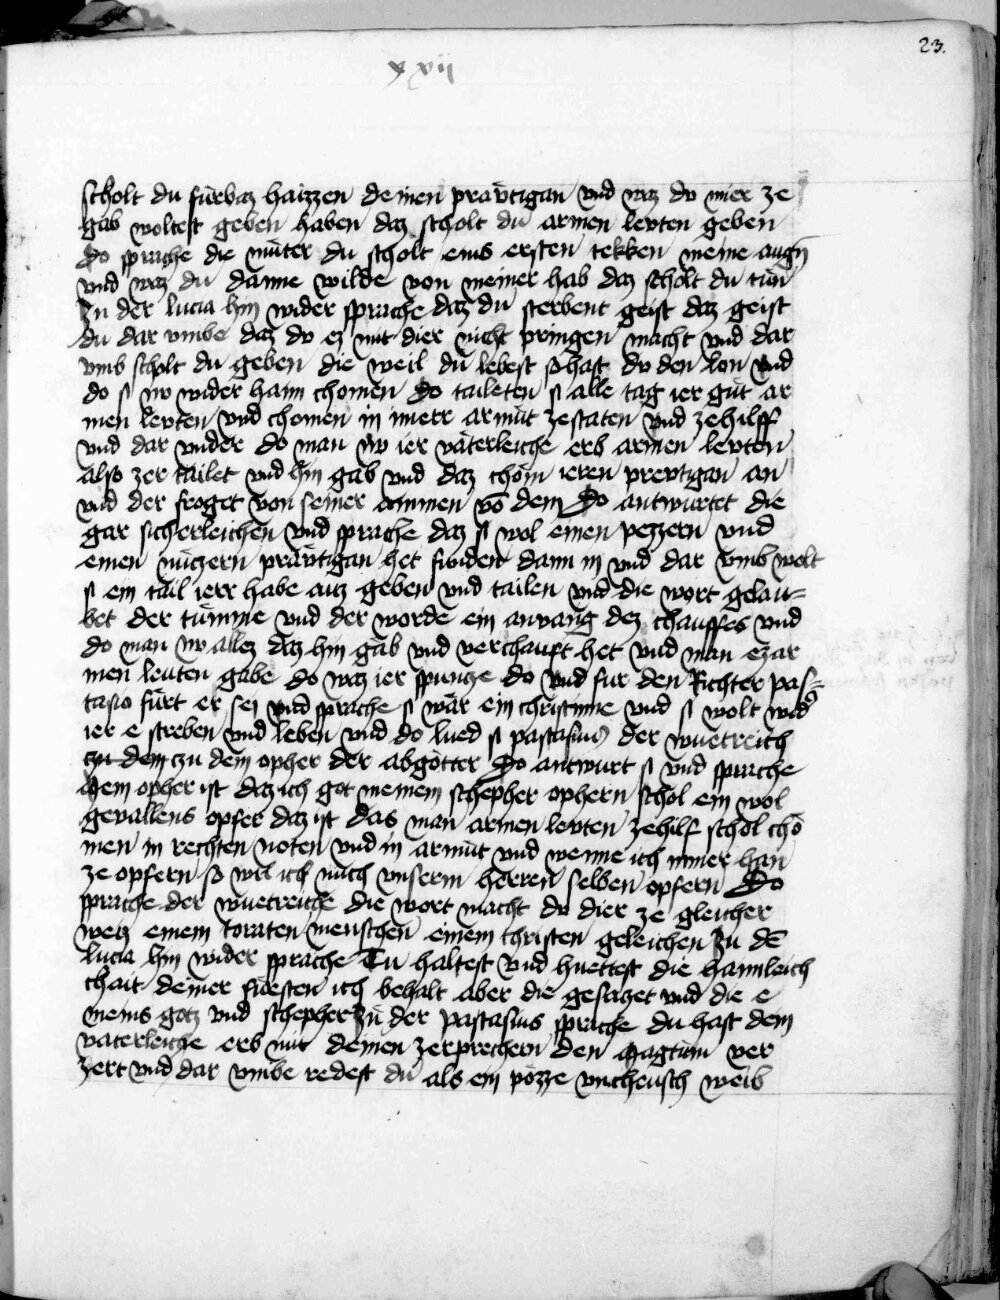 23.
xxii
scholt du fürbaz haizzen deinen präutigan vnd waz du mier ze
gab woltest geben haben daz scholt du armen leuten geben
Do sprache die muter du scholt ems ersten tekken meine augn
vnd waz du danne wilde von meiner hab daz scholt du tun
Zu der lucia hin wider sprache daz du sterbent geist daz geist
du dar vmbe daz du ez mit dier nicht pringen macht vnd dar
vmb scholt du geben die weil du lebest so hast du den lon vnd
do si nv wider haim chomen do taileten si alle tag ier gut ar
men leuten vnd chomen in ierr armut zestaten vnd zehilff
vnd dar vnder do man nv ier väterleiche erb armen leuten
also zer tailet vnd hin gab vnd daz chom ieren preutigan an
vnd der froget von seiner ammen vō dem Do antwurtet die
gar sicherleichen vnd sprache daz si wol einen pezzern vnd
einen nützern präutigan het funden dann in vnd dar vmb wolt
si ein tail ierr habe auz geben vnd tailen vnd die wort gelau=
bet der tumme vnd der worde ein anvang dez chauffes vnd
do man nv allez daz hin gab vnd verchauft het vnd man ez ar
men leuten gabe do waz ier spuntze do vnd fur den Richter pas=
tasio fürt er sei vnd sprache si wär ein christinne vnd si wolt wid
ier e streben vnd leben vnd do lued si pastasius der wuetreich
zu dem zu dem opher der abgötter Do antwurt si vnd sprache
Mein opher ist daz ich got meinem schepher ophern schol ein wol
gevallens opfer daz ist das man armen leuten zehilf schol cho
men in rechten noten vnd in armut vnd wenne ich nimer han
ze opfern so wil ich mich vnserm herren selben opfern Do
sprache der wuetreiche die wort macht du dier ze gleicher
weiz einem toraten menschen einem christen geleichen Zu dē
lucia hin wider sprache Tu haltest vnd huettest die haimleich
chait deiner fuersten ich behalt aber die gesatzet vnd die e
meins gotz vnd schepher Zu der pastasius sprache du hast dein
väterleiche erb mit deinen zerprechern den magtum ver
zert vnd dar vmbe redest du als ein pözze vncheusch weib